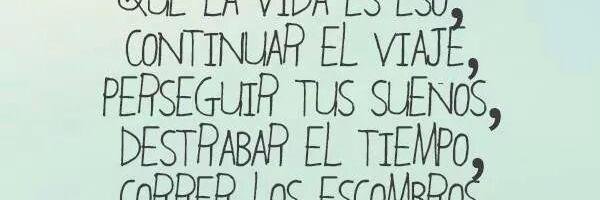 QUE LA VIDA ES ESO,
CONTINUAR EL VIAJE,
PERSEGUIR TUS SUEÑOS,
DESTRABAR EL TIEMPO,
CORRER LOS ESCOMBROS